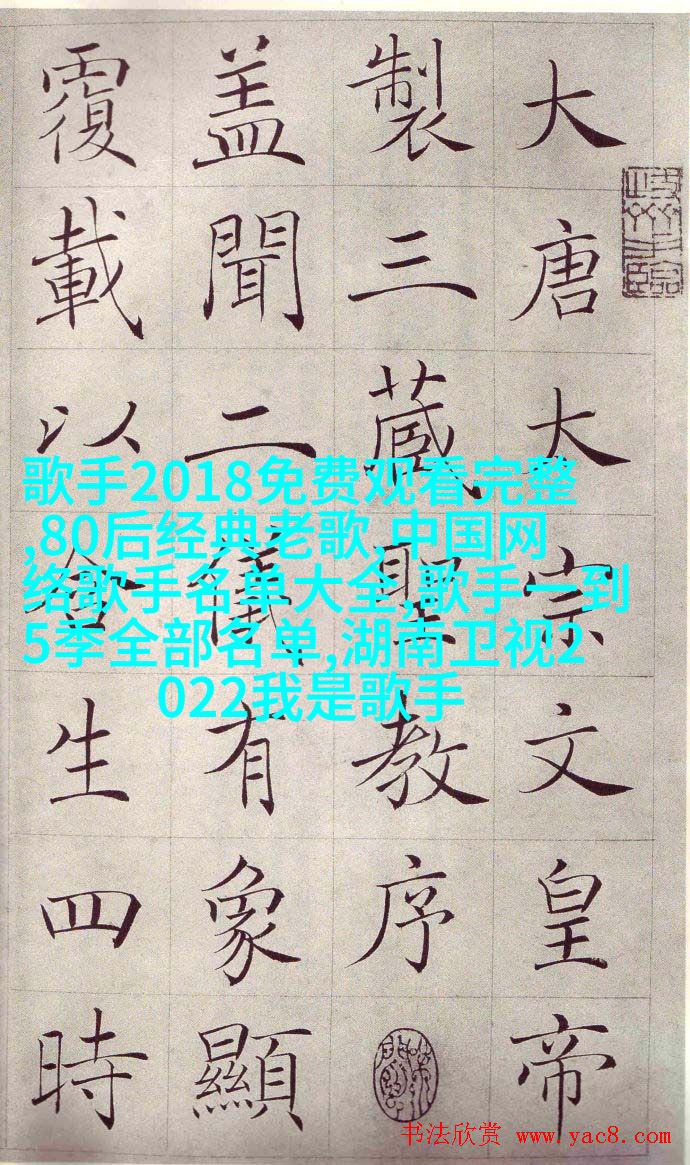 大唐大宗文皇帝
製三藏聖教序
蓋聞二儀有象顯
覆載以含生四時
歌手2018免费观看完整
,80后经典老歌,中国网
络歌手名单大全,歌手一到
5季全部名单,湖南卫视2
022我是歌手
书法欣赏 www.yac8.com